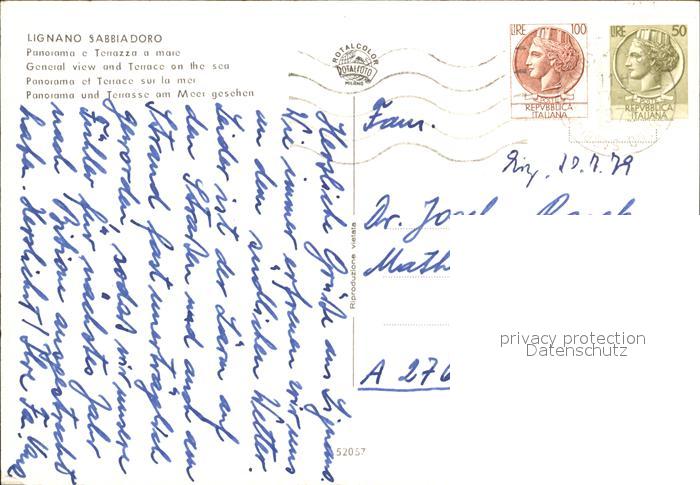 LIGNANO SABBIADORO
Panorama e Terrazza a mare
General view and Terrace on the sea
Panorama et Terrace sur la mer
Panorama und Terrasse am Meer gesehen
ROTALCOLOR
ROTALFOTO
MILANO
LIRE 100
POSTE
REPVBBLICA
ITALIANA
LIRE 50
POSTE
REPVBBLICA
ITALIANA
Fam.
10.7.79
Dr. Josef
Math
A 276
Riproduzione vietata
52057
Herzliche Grüße aus Lignano.
Wie immer erfreuen wir uns
an dem südlichen Wetter.
Leider ist der Lärm auf
den Straßen und auch am
Strand fast unerträglich
geworden, sodaß wir unsere
Fühler für nächstes Jahr
nach Bibione ausgestreckt
haben. Herzlichst Ihre Fa.
privacy protection
Datenschutz